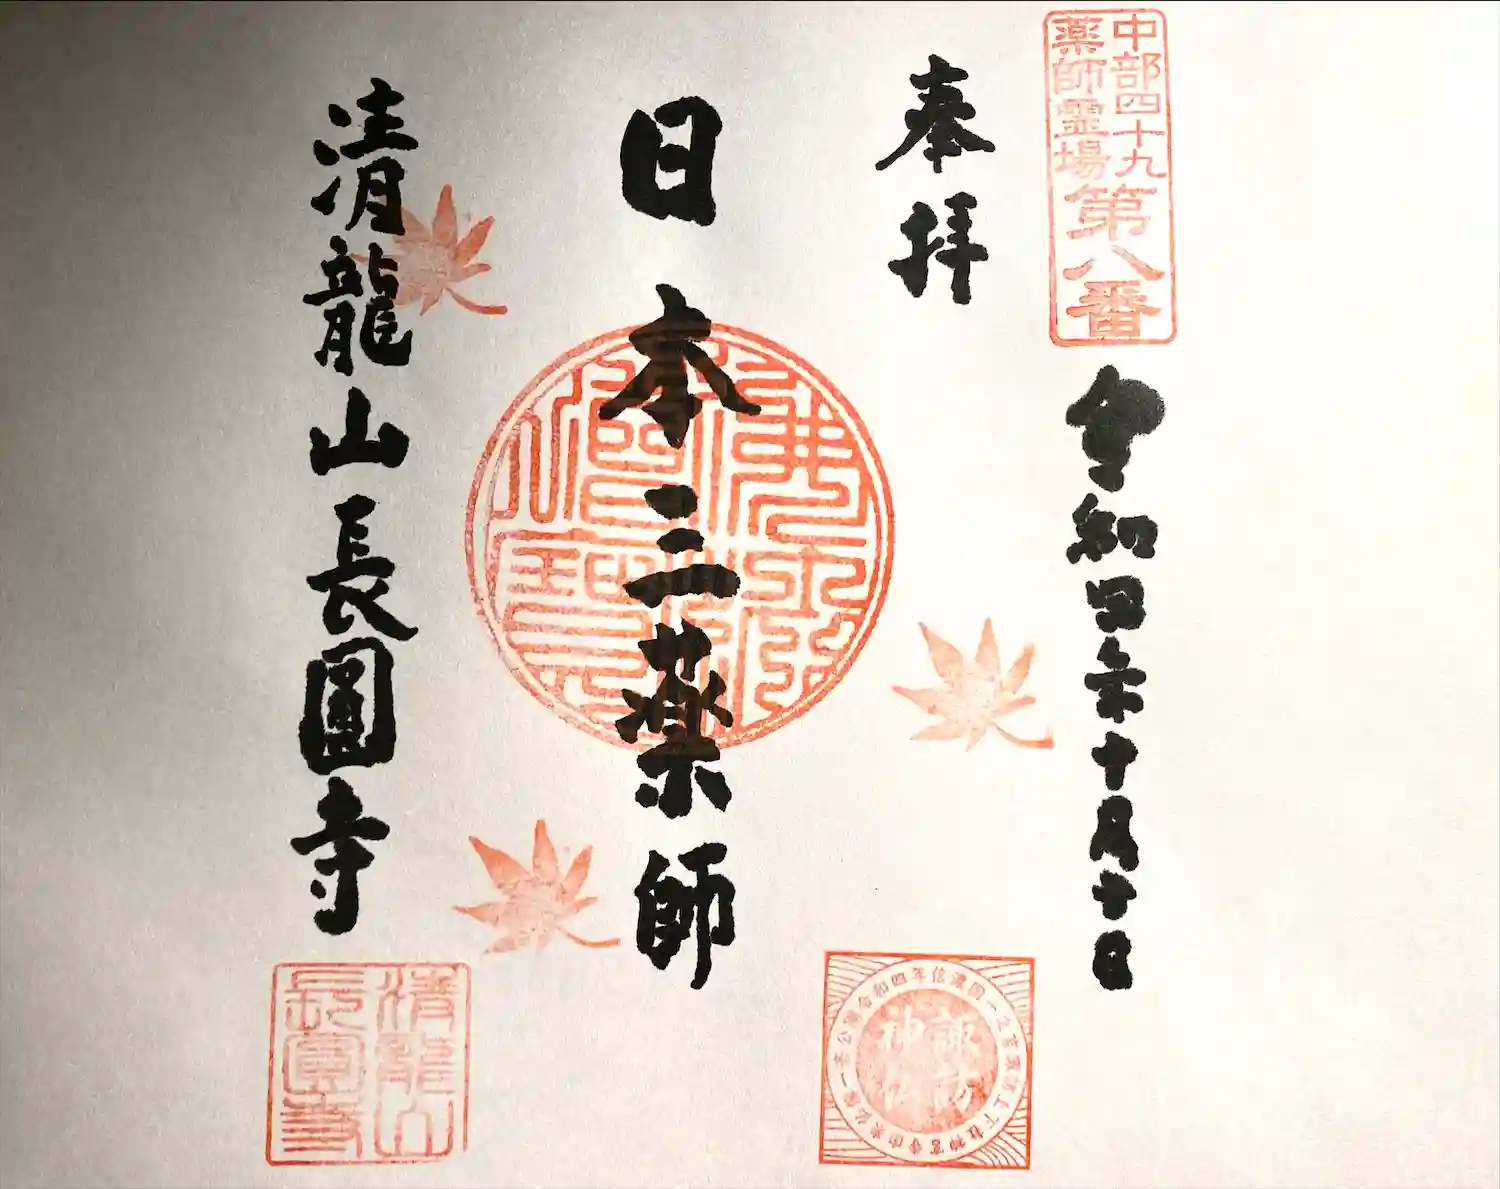 中部四十九
薬師霊場
第八番
令和四年十月十日
奉拝
日本三薬師
佛法僧寶
清龍山長圓寺
清龍山
長圓寺